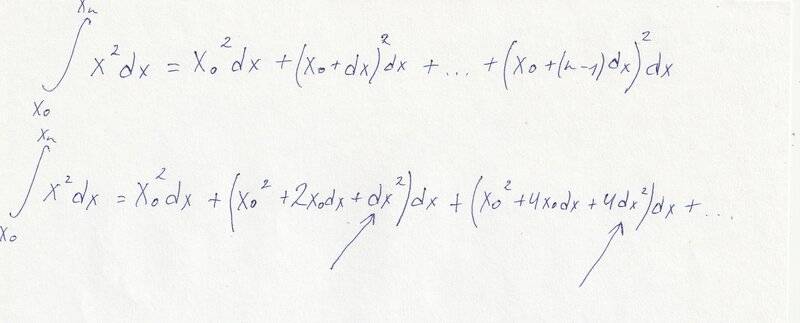 ∫_{x₀}^{xₙ} x² dx = x₀² dx + (x₀ + dx)² dx + ... + (x₀ + (n-1) dx)² dx
∫_{x₀}^{xₙ} x² dx = x₀² dx + (x₀² + 2x₀dx + dx²) dx + (x₀² + 4x₀dx + 4dx²) dx + ...